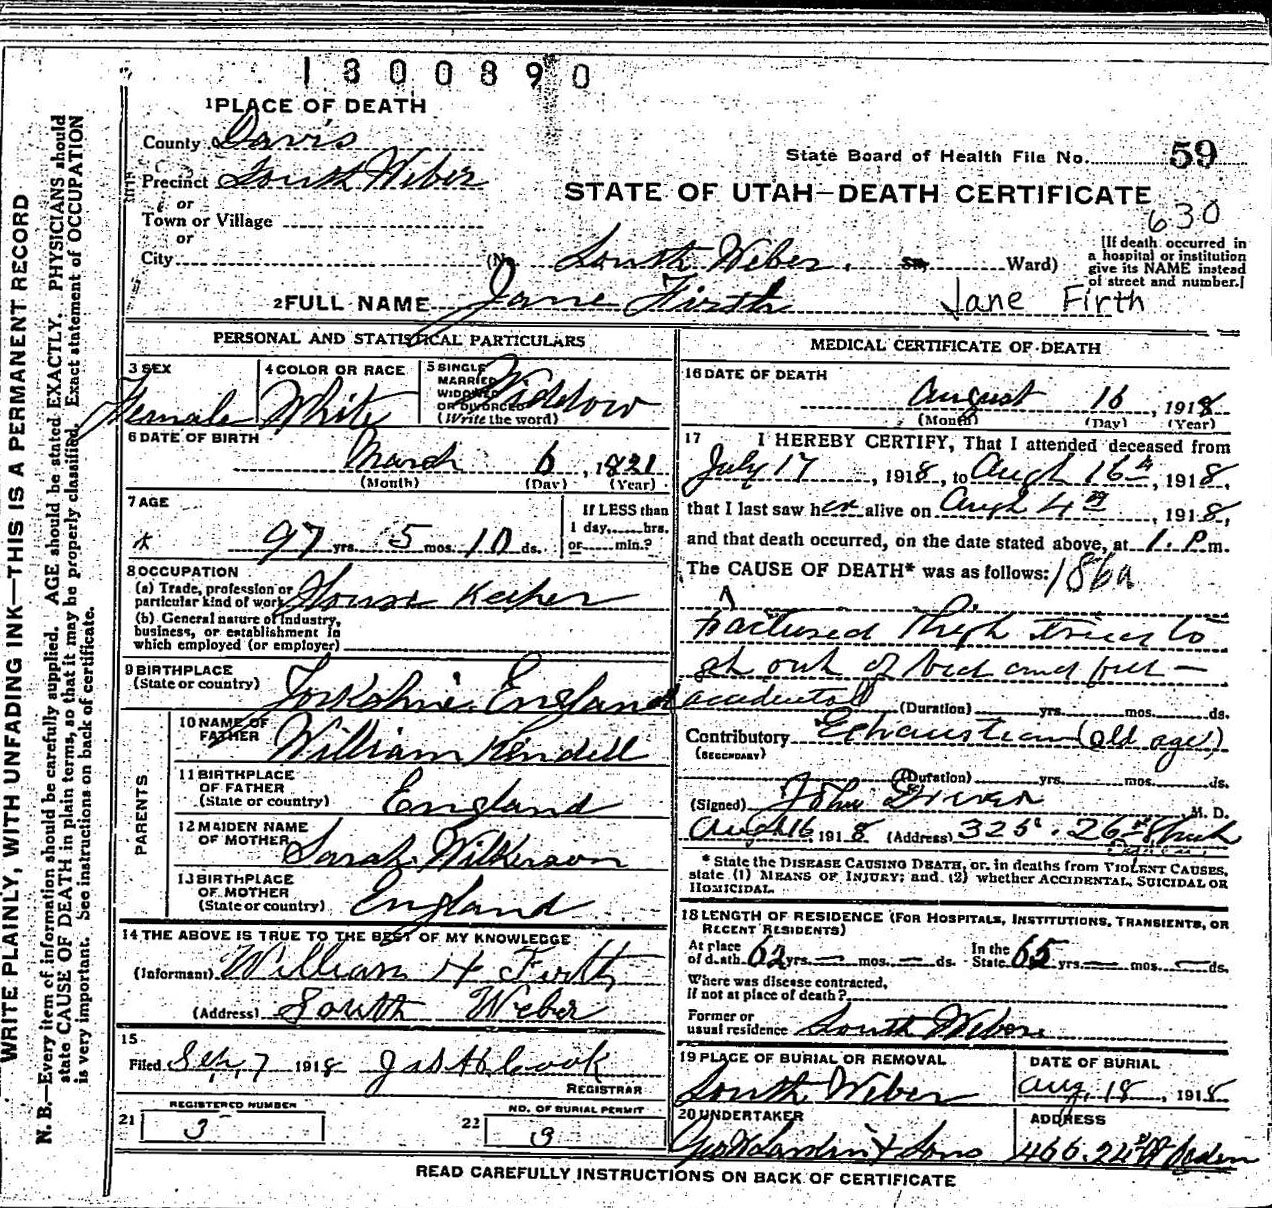 1300890
1 PLACE OF DEATH
County of Davis
State Board of Health File No. 59
Precinct South Weber
STATE OF UTAH—DEATH CERTIFICATE
630
or
Town or Village
or
City (No. South Weber. St. Ward)
[If death occurred in a hospital or institution give its NAME instead of street and number.]
2 FULL NAME Jane Firth Jane Firth
PERSONAL AND STATISTICAL PARTICULARS
3 SEX Female
4 COLOR OR RACE White
5 SINGLE MARRIED WIDOWED OR DIVORCED (Write the word) Widdow
6 DATE OF BIRTH
March 6, 1821
(Month) (Day) (Year)
7 AGE
97 yrs. 5 mos. 10 ds.
If LESS than 1 day, hrs. or min.?
8 OCCUPATION
(a) Trade, profession or particular kind of work House Keeper
(b) General nature of industry, business, or establishment in which employed (or employer)
9 BIRTHPLACE (State or country) Yorkshire England
PARENTS
10 NAME OF FATHER William Kendell
11 BIRTHPLACE OF FATHER (State or country) England
12 MAIDEN NAME OF MOTHER Sarah Wilkerson
13 BIRTHPLACE OF MOTHER (State or country) England
14 THE ABOVE IS TRUE TO THE BEST OF MY KNOWLEDGE
(Informant) William H Firth
(Address) South Weber
15
Filed Sep. 7 1918 Jas H Cook
REGISTRAR
21 REGISTERED NUMBER 3
22 NO. OF BURIAL PERMIT 19
MEDICAL CERTIFICATE OF DEATH
16 DATE OF DEATH
August 16, 1918
(Month) (Day) (Year)
17 I HEREBY CERTIFY, That I attended deceased from
July 17, 1918, to Augh 16th, 1918,
that I last saw her alive on Augh 4th, 1918,
and that death occurred, on the date stated above, at 1. P.m.
The CAUSE OF DEATH* was as follows: 186a
Fractured Thigh tries to
get out of bed and fell—
accidental (Duration) yrs. mos. ds.
Contributory Exhaustion (old age)
(SECONDARY)
(Duration) yrs. mos. ds.
(Signed) John Driver M. D.
Augh 16 1918 (Address) 325. 26th Street
* State the DISEASE CAUSING DEATH, or, in deaths from VIOLENT CAUSES,
state (1) MEANS OF INJURY; and (2) whether ACCIDENTAL, SUICIDAL OR
HOMICIDAL.
18 LENGTH OF RESIDENCE (FOR HOSPITALS, INSTITUTIONS, TRANSIENTS, OR
RECENT RESIDENTS)
At place of death 62 yrs. — mos. — ds. In the State 65 yrs. — mos. — ds.
Where was disease contracted,
if not at place of death?
Former or
usual residence South Weber
19 PLACE OF BURIAL OR REMOVAL
South Weber
DATE OF BURIAL
Aug. 18, 1918
20 UNDERTAKER
Geo W Larkin & Sons
ADDRESS
466. 24th St Ogden
READ CAREFULLY INSTRUCTIONS ON BACK OF CERTIFICATE
WRITE PLAINLY, WITH UNFADING INK—THIS IS A PERMANENT RECORD
N. B.—Every item of information should be carefully supplied. AGE should be stated EXACTLY. PHYSICIANS should
state CAUSE OF DEATH in plain terms, so that it may be properly classified. Exact statement of OCCUPATION
is very important. See instructions on back of certificate.